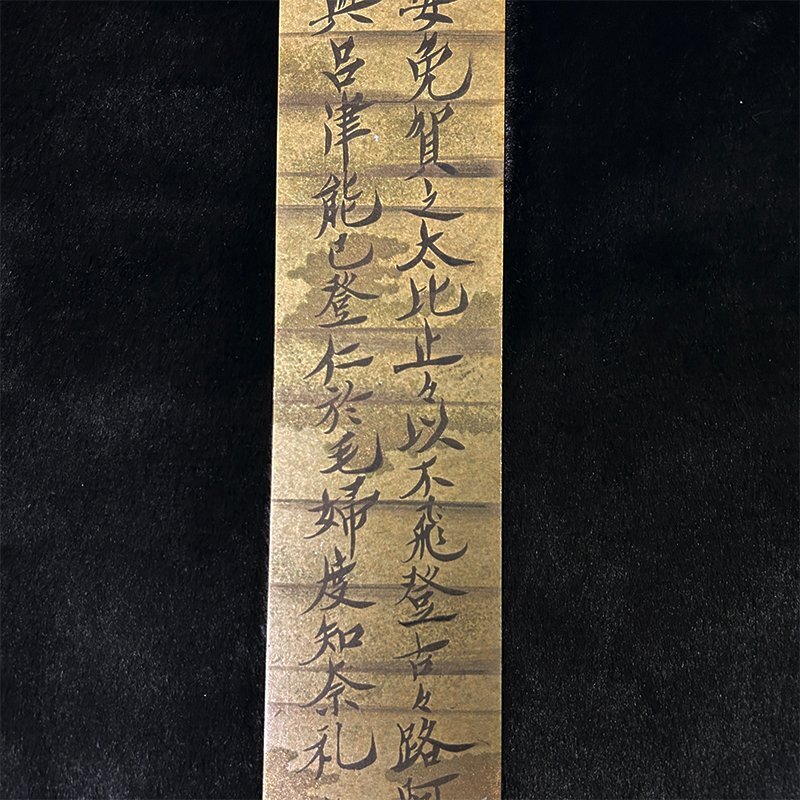 免賀之太比止々以不飛登古々路
呂津能已登仁於毛婦度知奈礼